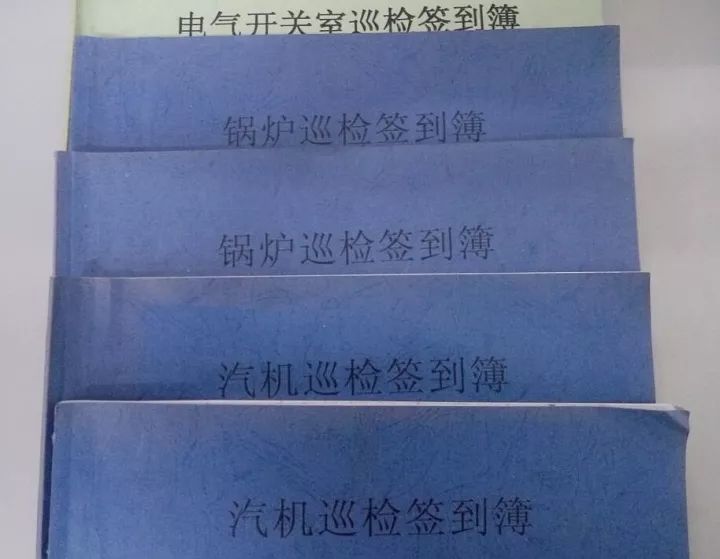 电气开关室巡检签到簿
锅炉巡检签到簿
锅炉巡检签到簿
汽机巡检签到簿
汽机巡检签到簿